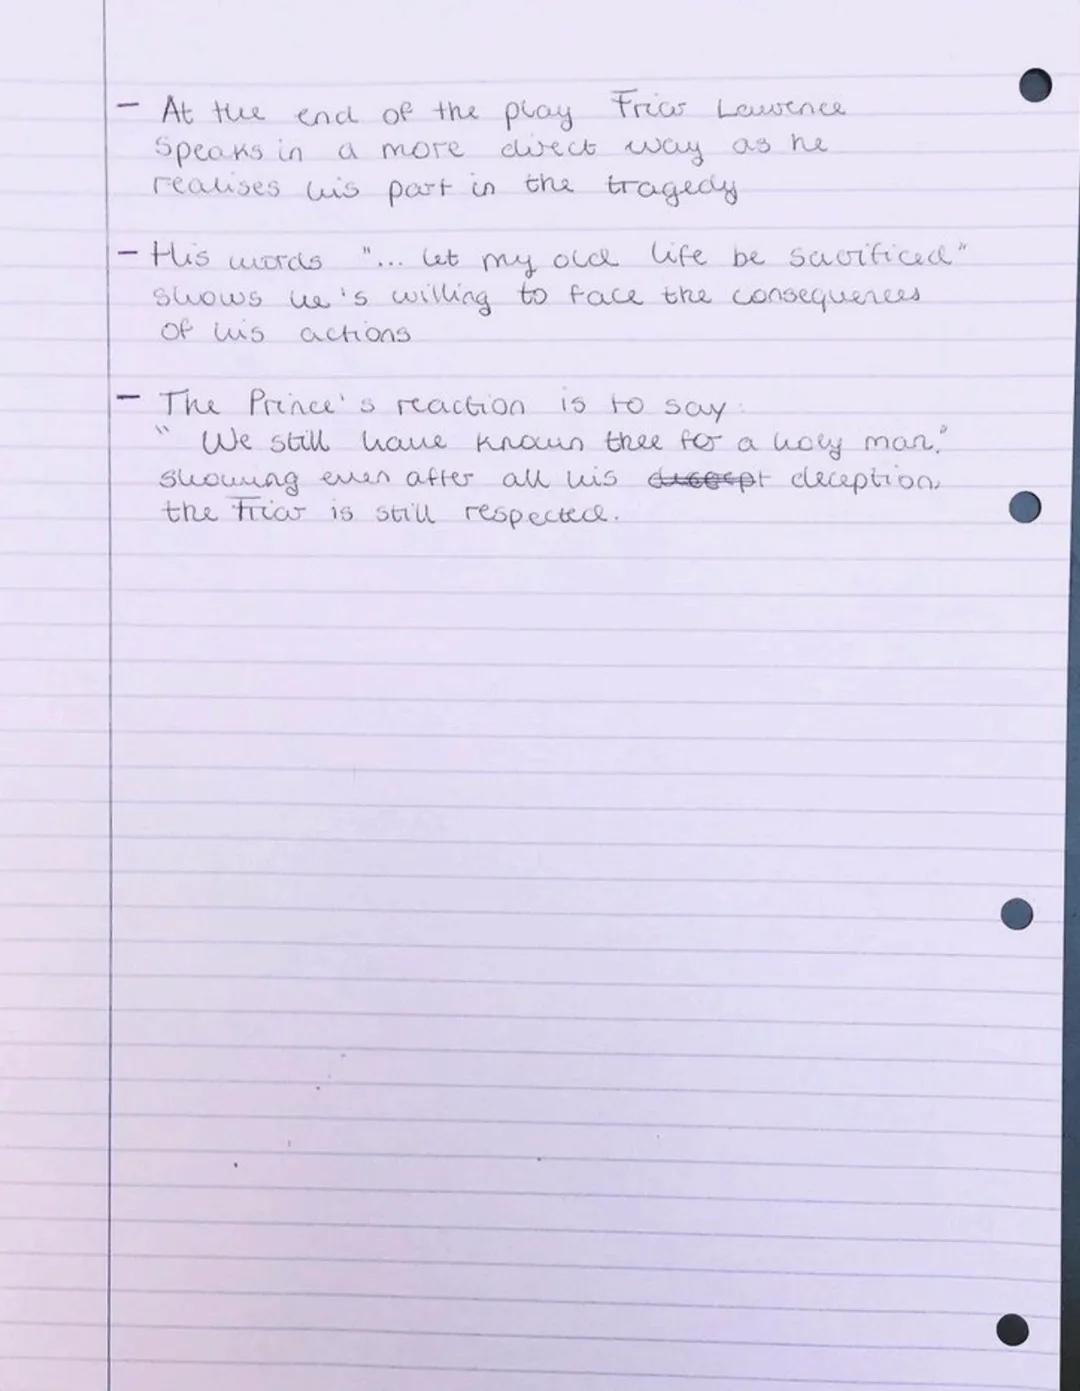 - At the end of the play Friar Lawrence
Speaks in a more direct way as he
realises his part in the tragedy
- His words "... let my old life be sacrificed"
shows he's willing to face the consequences
of his actions
- The Prince's reaction is to say:
" We still have known thee for a holy man."
showing even after all his deception,
the Friar is still respected.